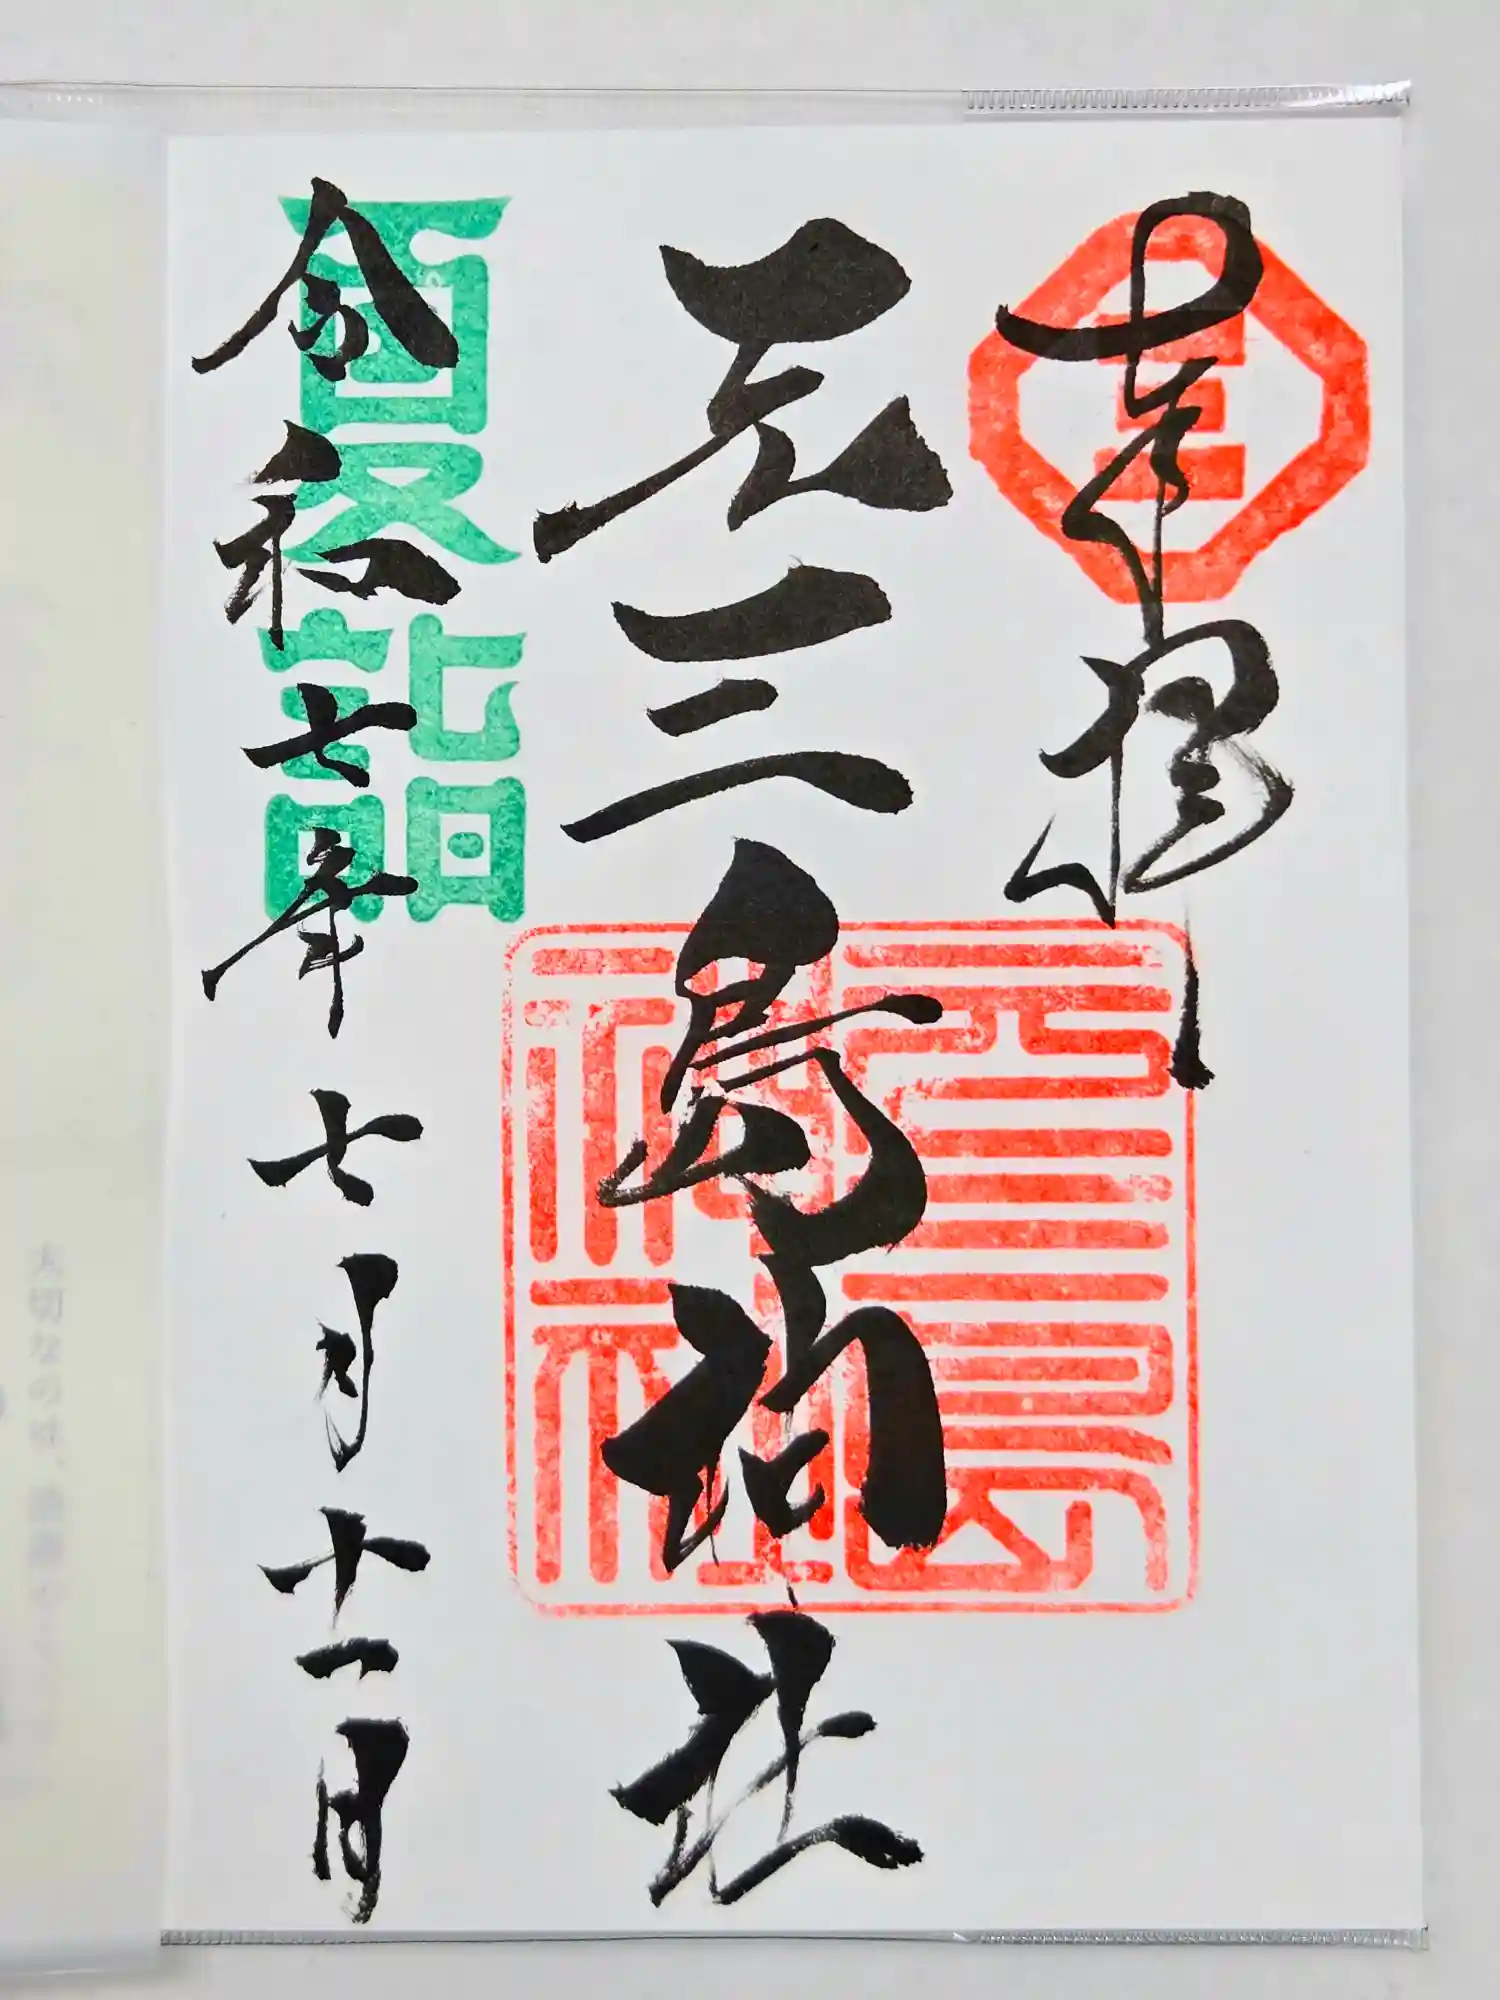 奉拝
元三島神社
元三島神社
夏詣
令和七年七月十一日